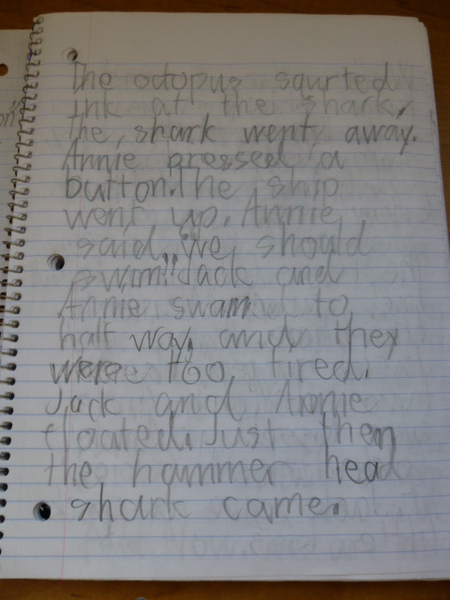 The octopus squrted
ink at the shark,
the shark went away.
Annie pressed a
button. The ship
went up. Annie
said "we should
swim" Jack and
Annie swam to
half way, and they
were too tired.
Jack and Annie
floated. Just then
the hammer head
shark came.